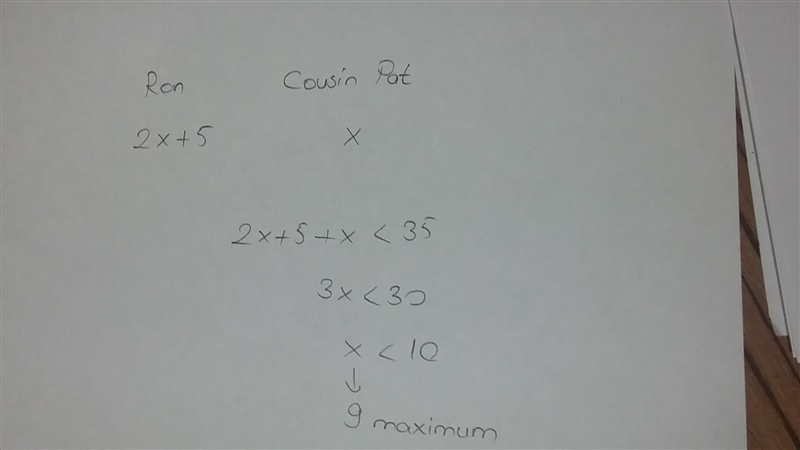 Ron Cousin Pat
2x+5 x
2x+5+x < 35
3x < 30
x < 10
↓
9 maximum